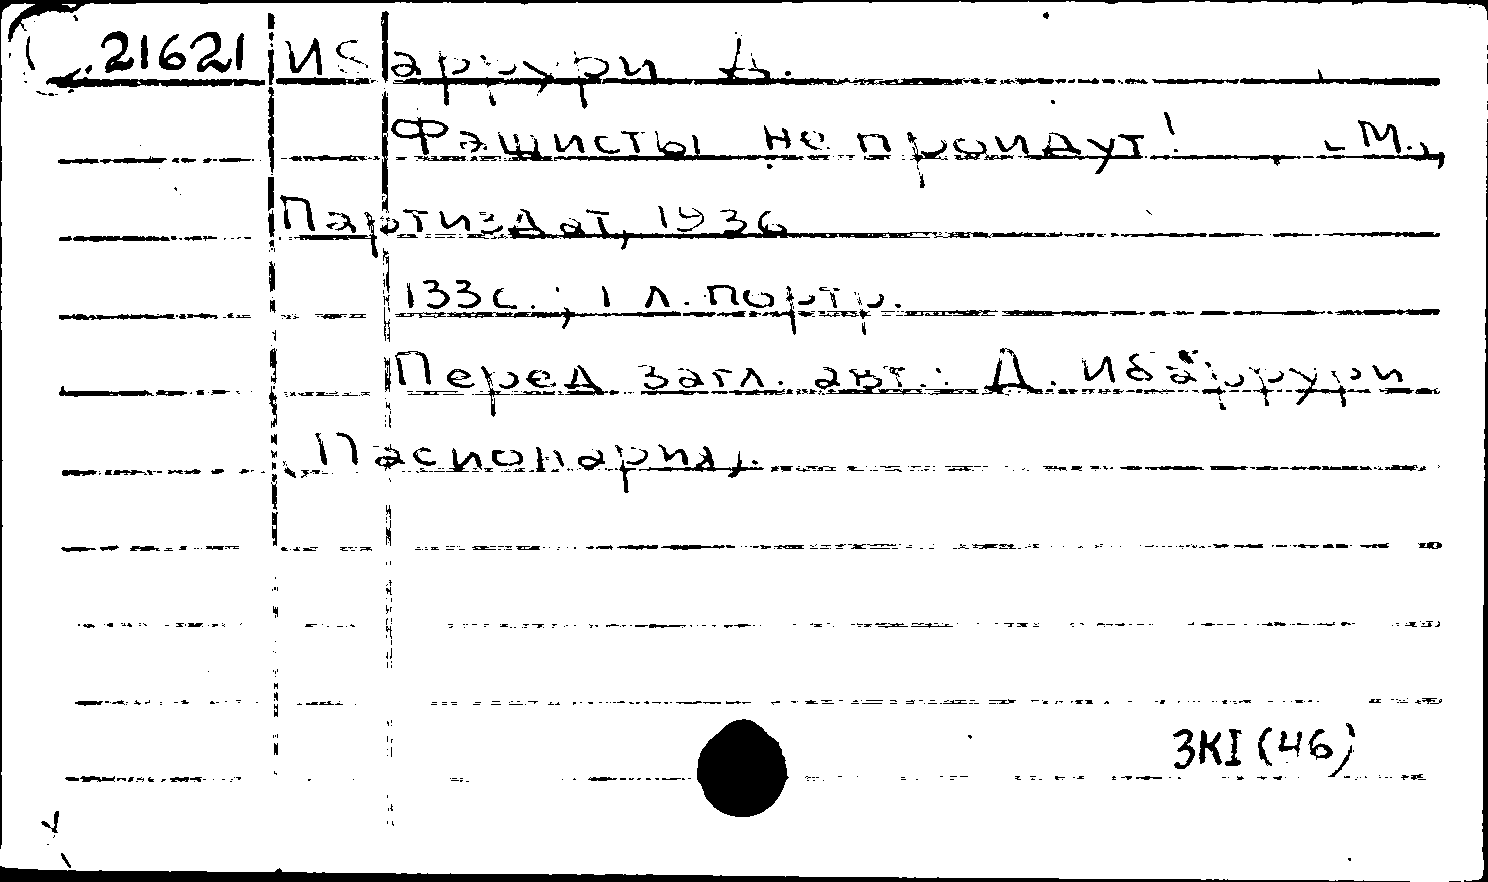 21621 Ибаррури Д.
Фашисты не пройдут! - М.,
Партиздат, 1936
133 с.; 1 л. портр.
Перед загл. авт.: Д. Ибаррури
(Пасионария).
3КI(46)